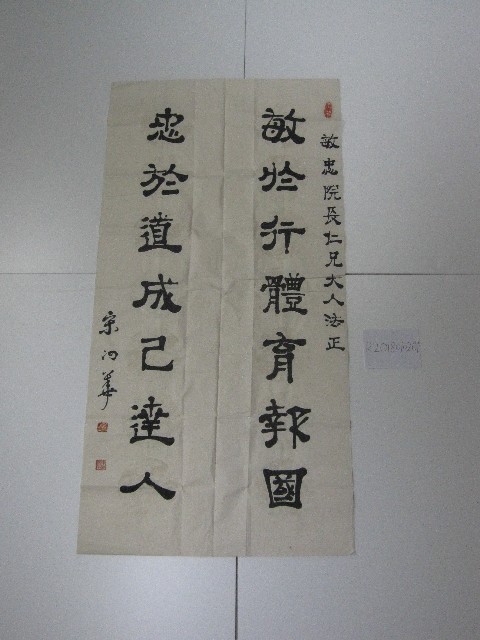 敏忠院長仁兄大人法正
敏於行體育報國
忠於道成己達人
宗河華